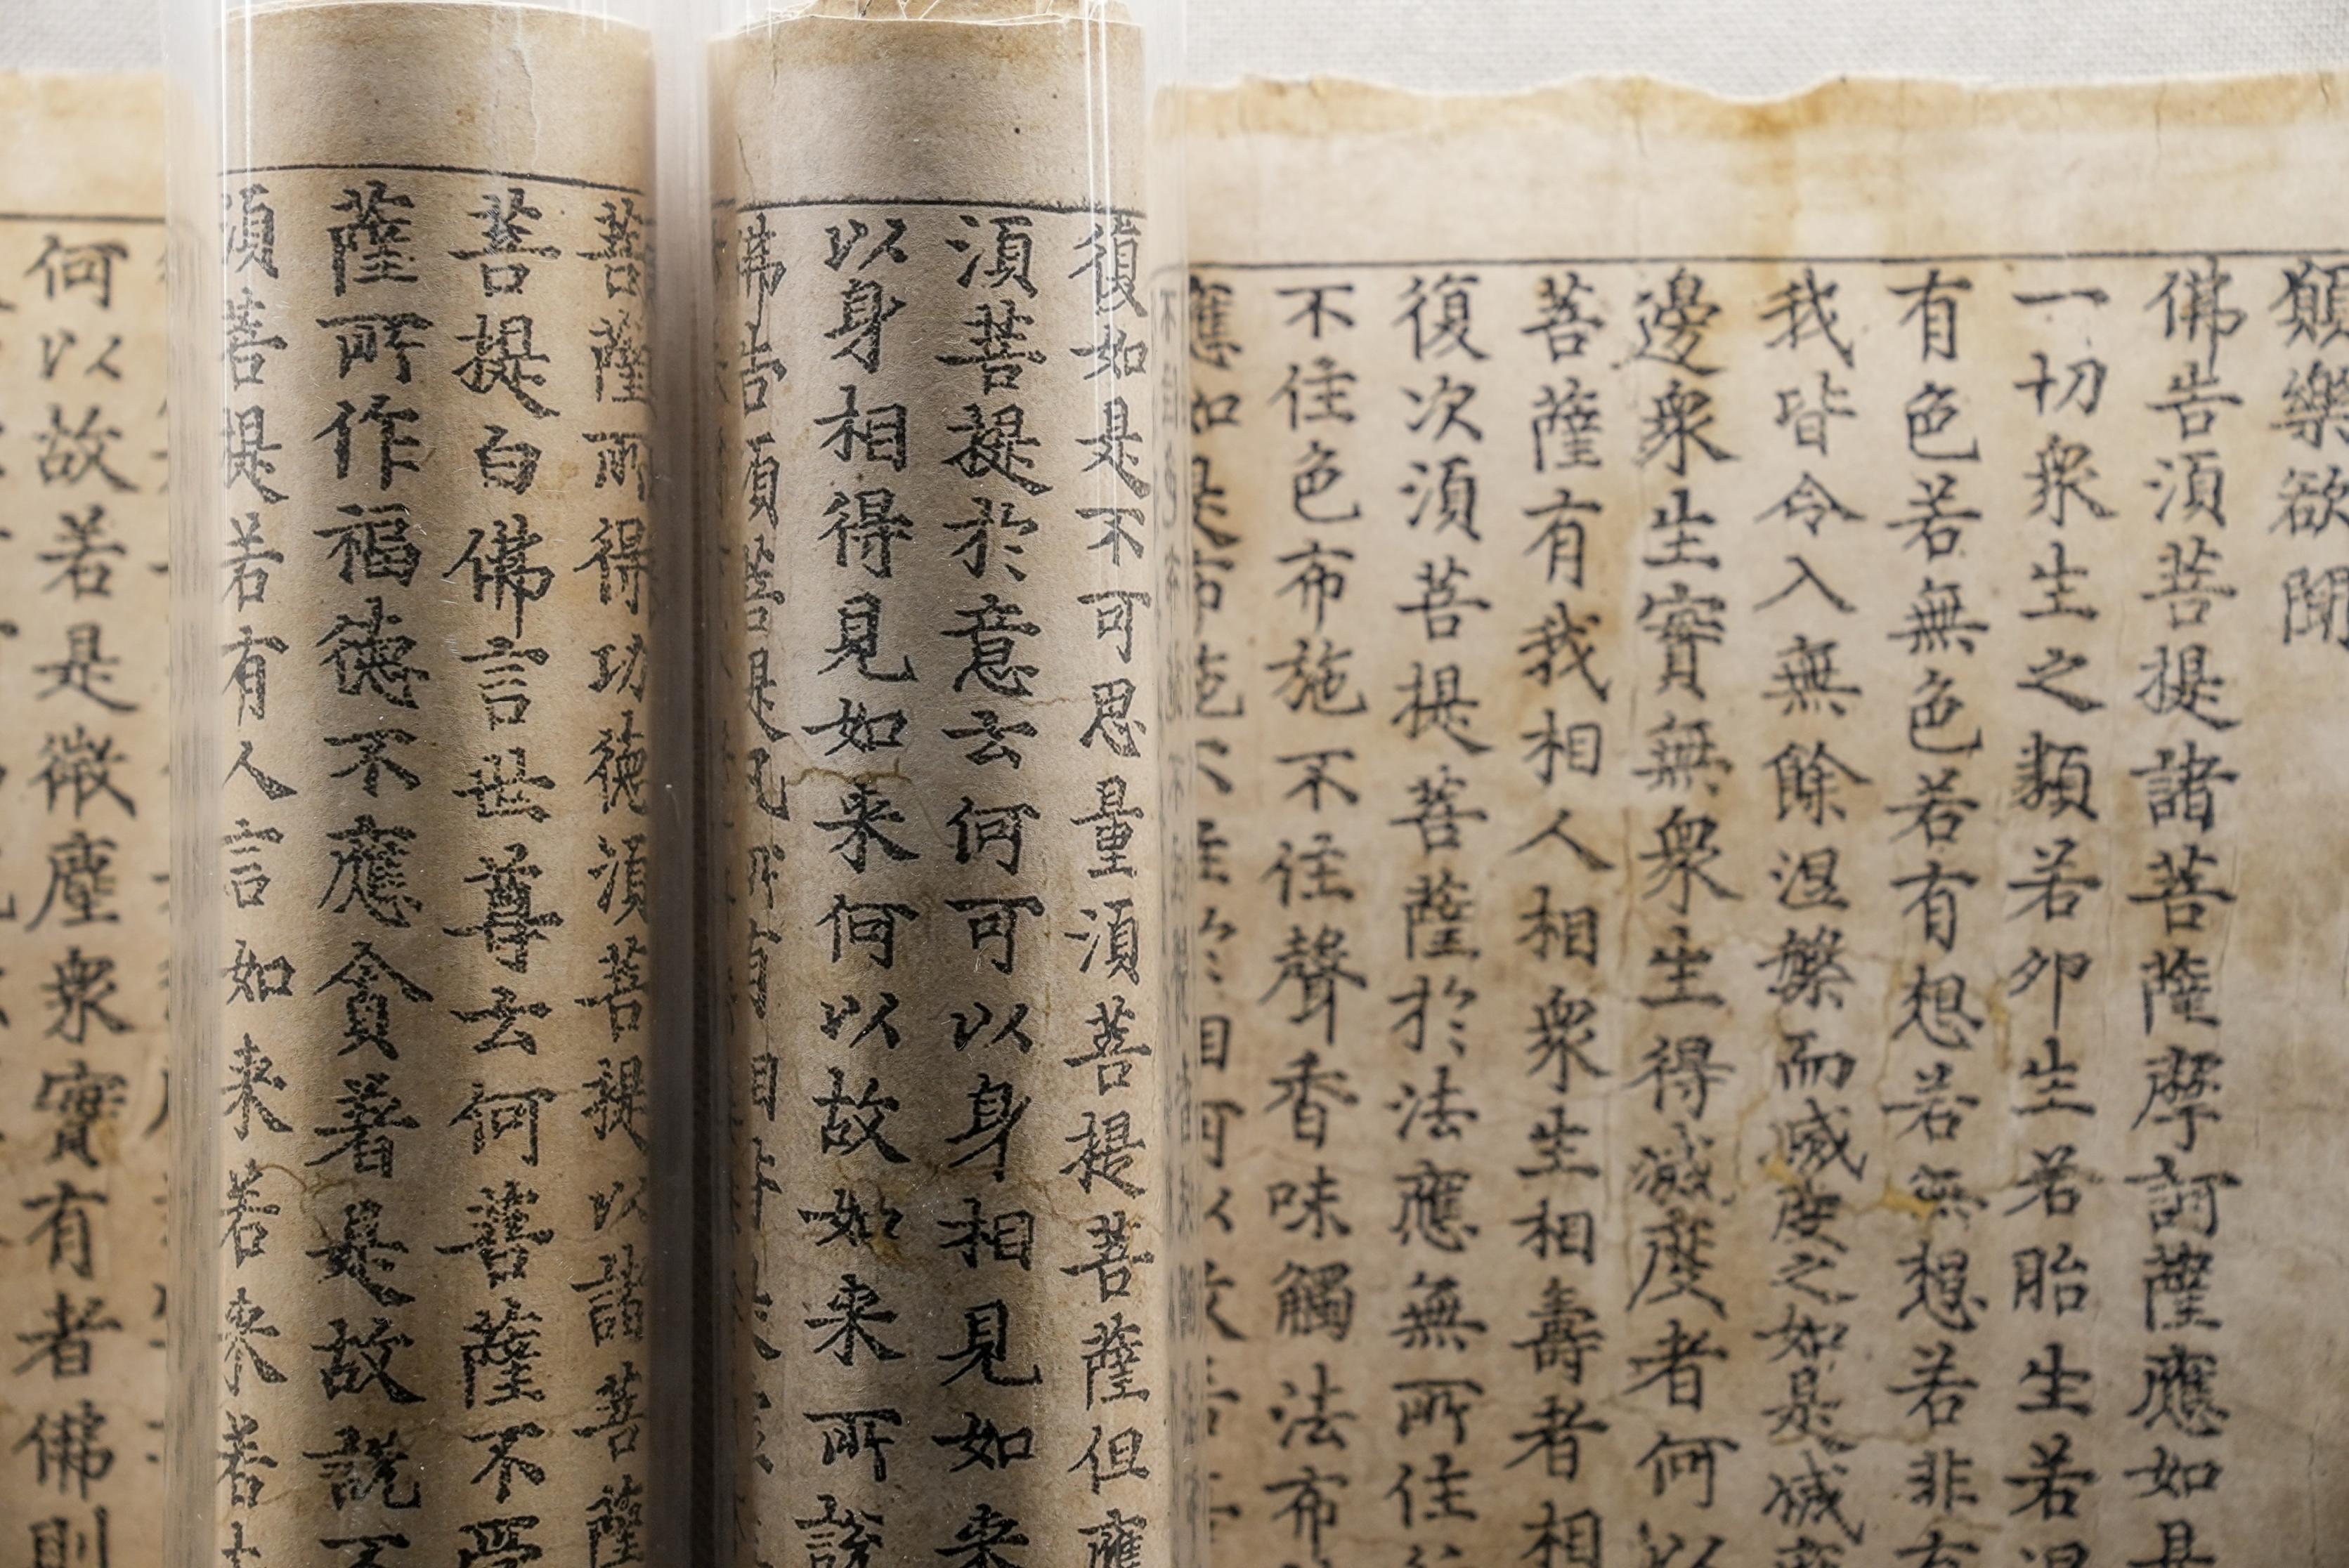 願樂欲聞
佛告須菩提諸菩薩摩訶薩應如是
一切衆生之類若卵生若胎生若濕
有色若無色若有想若無想若非有
我皆令入無餘涅槃而滅度之如是滅度
邊衆生實無衆生得滅度者何以
菩薩有我相人相衆生相壽者相
復次須菩提菩薩於法應無所住
不住色布施不住聲香味觸法布
應如是布施不住於相何以故若
復如是不可思量須菩提菩薩但應
須菩提於意云何可以身相見如来
以身相得見如来何以故如来所說
佛告須菩提凡所有相皆
菩薩所得功德須菩提以諸菩薩
菩提白佛言世尊云何菩薩不受
薩所作福德不應貪著是故說不
須菩提若有人言如来若来若
何以故若是微塵衆實有者佛則